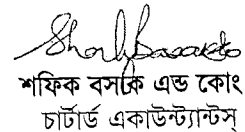 শফিক বসাক এন্ড কোং
চার্টার্ড একাউন্ট্যান্টস্